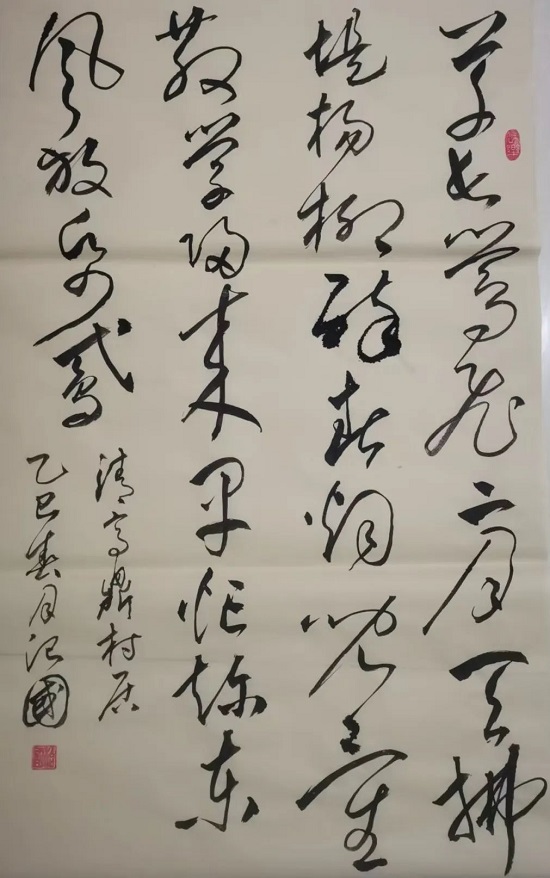 草长莺飞二月天拂
堤杨柳醉春烟儿童
散学归来早忙趂東
风放帋鸢
清高鼎村居
乙巳春月國